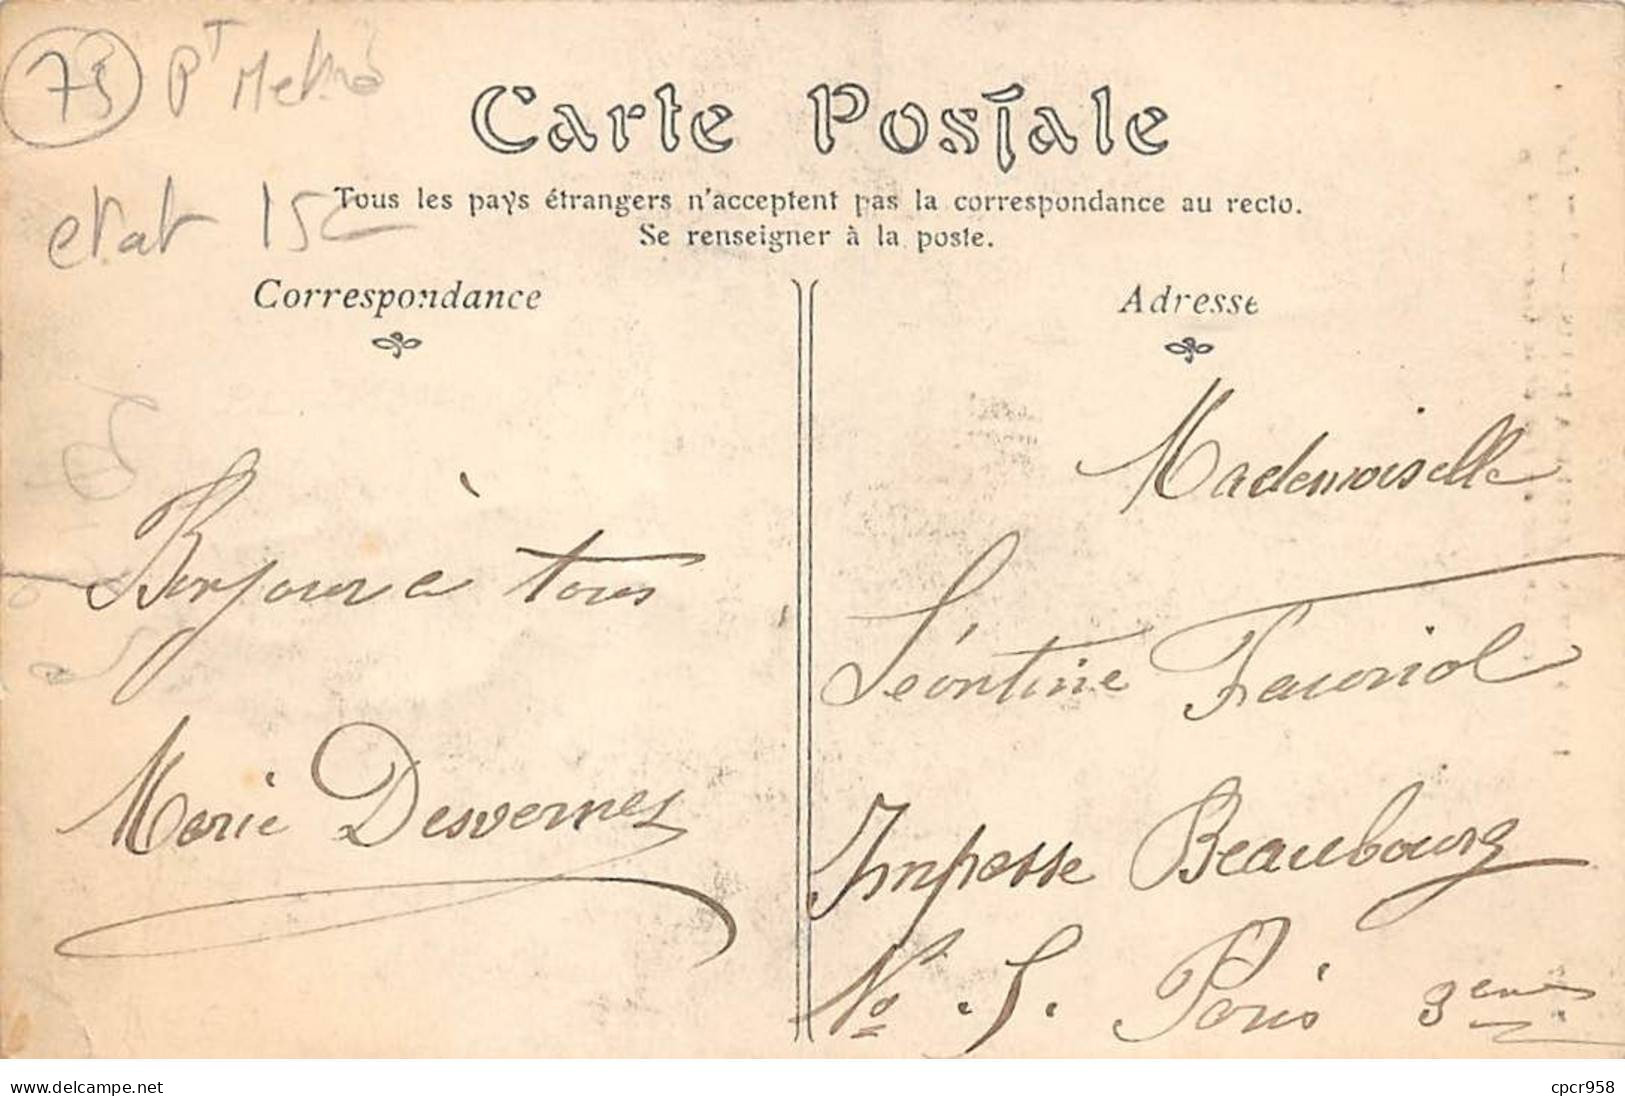 75 Pt Metro
Carte Postale
etat 15
Tous les pays étrangers n'acceptent pas la correspondance au recto.
Se renseigner à la poste.
Correspondance
Bonjour à tous
Marie Desvernes
Adresse
Mademoiselle
Léontine Fauriol
Impasse Beaubourg
No. 5. Paris 3eme
www.delcampe.net
cpcr958